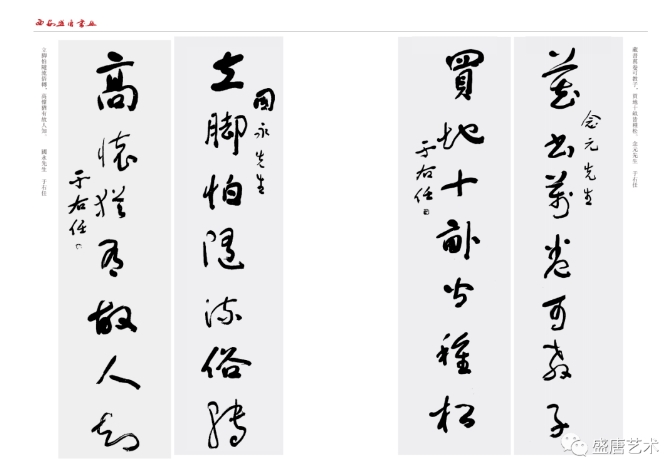 藏書萬卷可教子,買地十畝皆種松。念元先生 于右任
藏書萬卷可教子
念元先生
買地十畝皆種松
于右任
立腳怕隨流俗轉
國永先生
高懷猶有故人知
于右任
立腳怕隨流俗轉,高懷猶有故人知。 國永先生 于右任
盛唐艺术